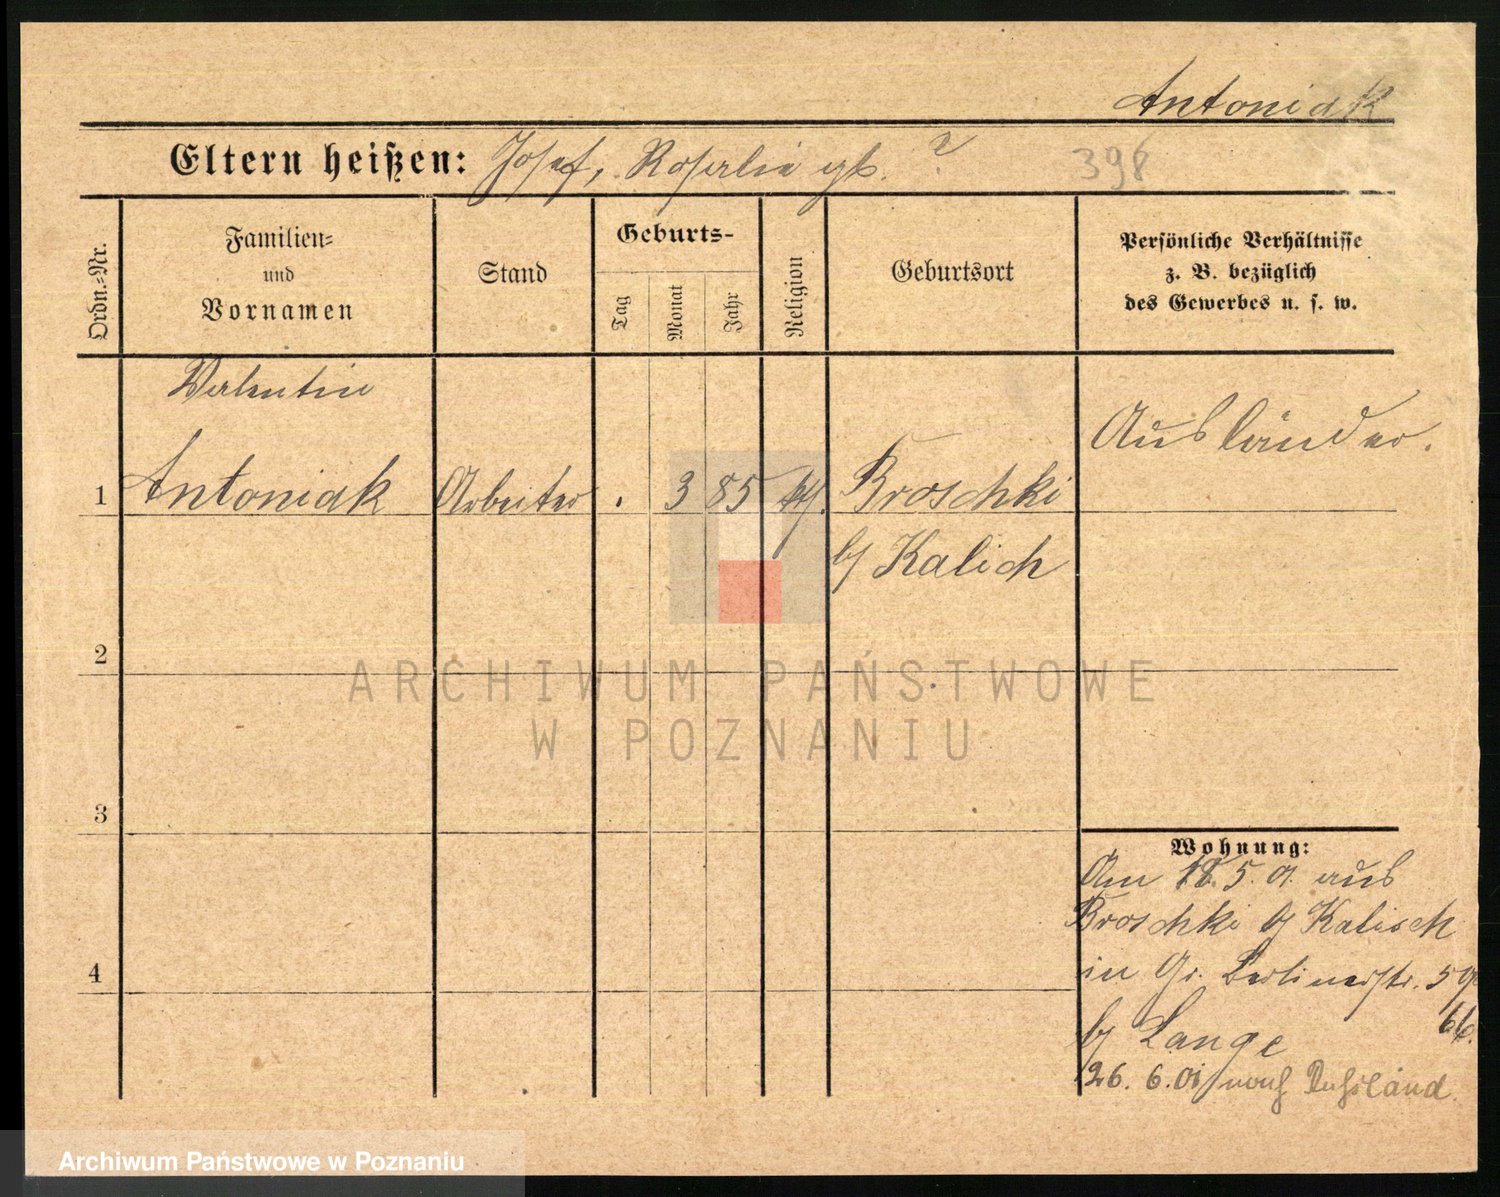 Antoniak
Eltern heißen: Josef, Rosalie gb. ?
398
Ordn.-Nr.
Familien-
und
Vornamen
Stand
Geburts-
Tag
Monat
Jahr
Religion
Geburtsort
Persönliche Verhältnisse
z. B. bezüglich
des Gewerbes u. s. w.
Valentin
1 Antoniak Arbeiter . 3 85 Broschki
b/ Kalich
Ausländer.
2
3
4
Wohnung:
Am 18. 5. 01. aus
Broschki b/ Kalisch
in Gr. Berlinerstr. 59
66.
b/ Lange
26. 6. 01 nach Rußland.
ARCHIWUM PAŃSTWOWE
W POZNANIU
Archiwum Państwowe w Poznaniu